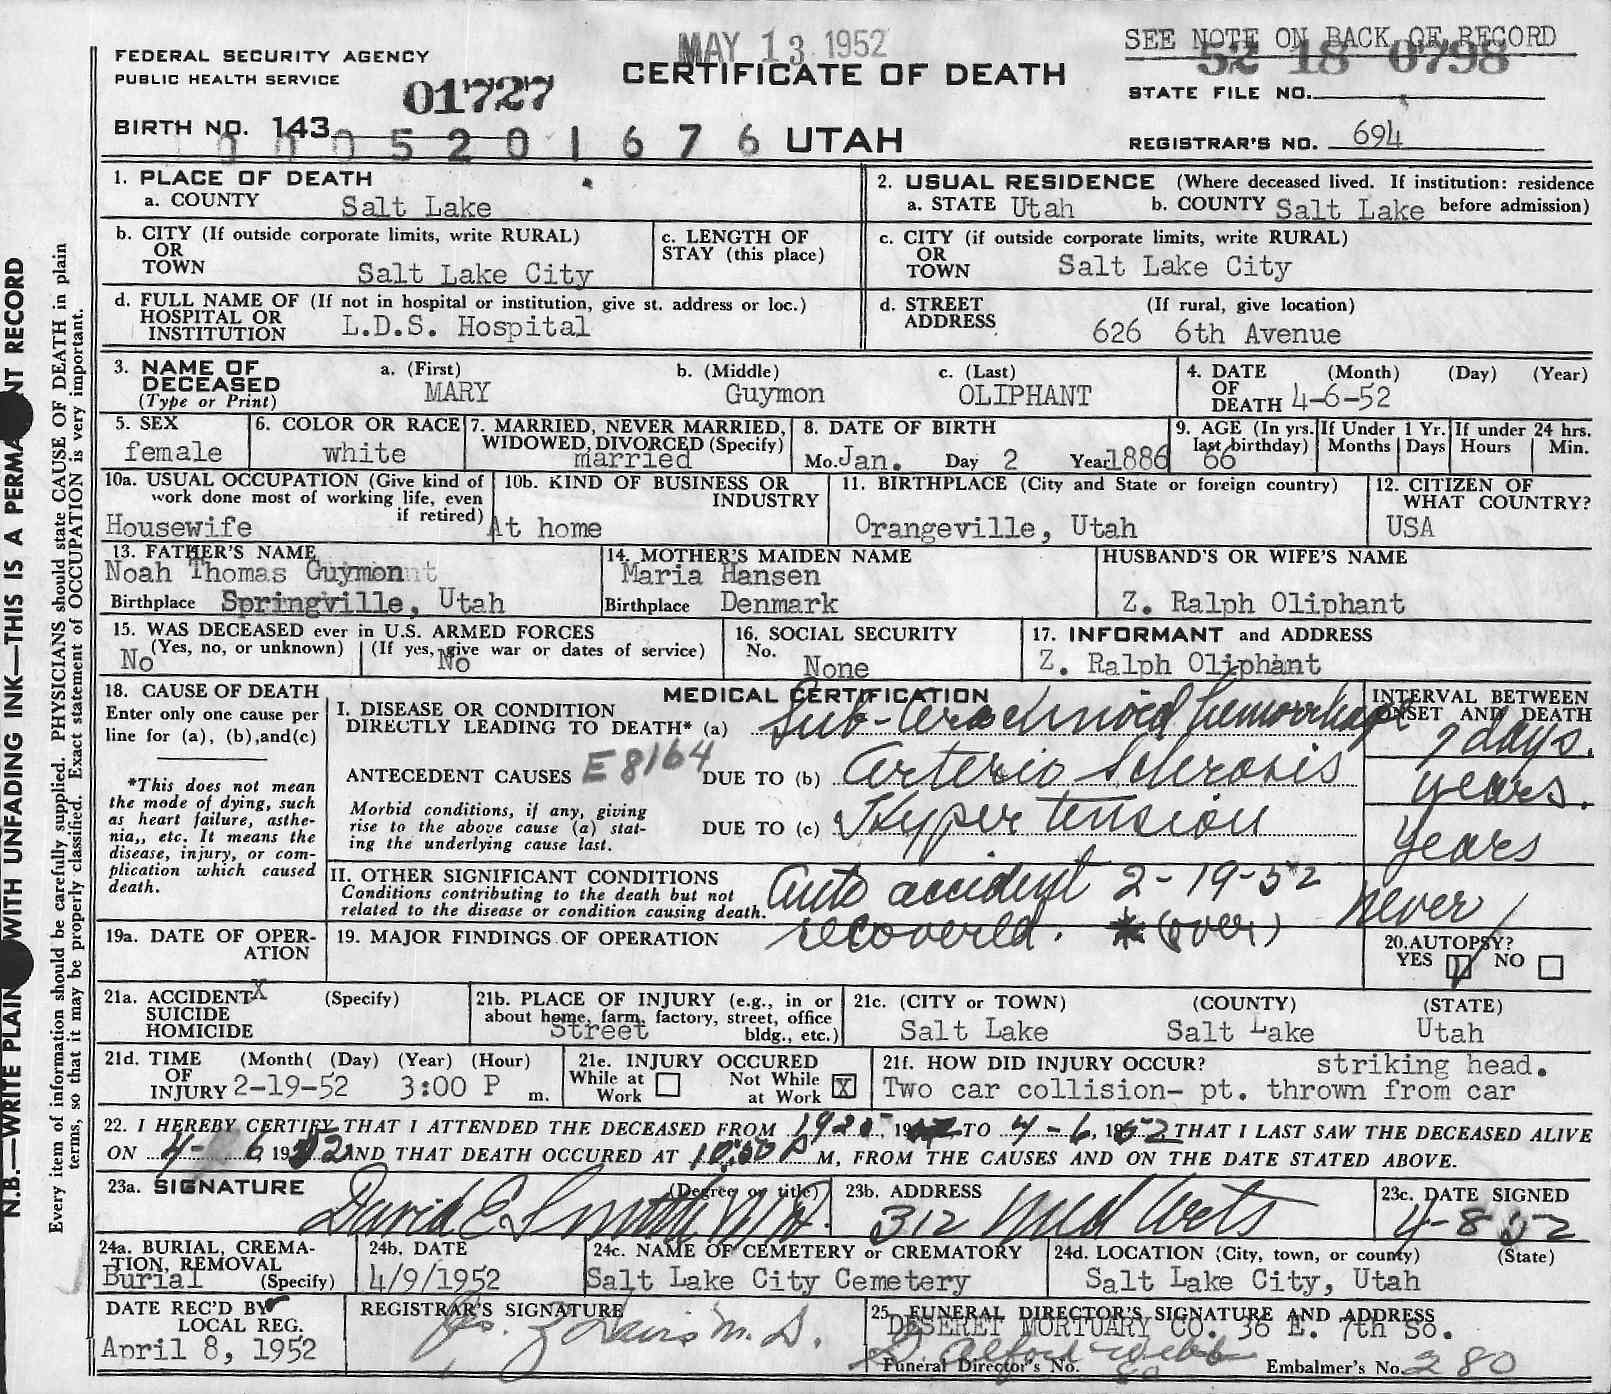 MAY 13 1952
SEE NOTE ON BACK OF RECORD
FEDERAL SECURITY AGENCY
PUBLIC HEALTH SERVICE
01727
CERTIFICATE OF DEATH
52 18 0798
STATE FILE NO.
BIRTH NO. 143
0005201676 UTAH
REGISTRAR'S NO. 694
1. PLACE OF DEATH
a. COUNTY Salt Lake
2. USUAL RESIDENCE (Where deceased lived. If institution: residence before admission)
a. STATE Utah b. COUNTY Salt Lake
b. CITY (If outside corporate limits, write RURAL)
OR
TOWN Salt Lake City
c. LENGTH OF
STAY (this place)
c. CITY (if outside corporate limits, write RURAL)
OR
TOWN Salt Lake City
d. FULL NAME OF (If not in hospital or institution, give st. address or loc.)
HOSPITAL OR
INSTITUTION L.D.S. Hospital
d. STREET (If rural, give location)
ADDRESS 626 6th Avenue
3. NAME OF
DECEASED
(Type or Print)
a. (First) MARY
b. (Middle) Guymon
c. (Last) OLIPHANT
4. DATE (Month) (Day) (Year)
OF
DEATH 4-6-52
5. SEX
female
6. COLOR OR RACE
white
7. MARRIED, NEVER MARRIED,
WIDOWED, DIVORCED (Specify)
married
8. DATE OF BIRTH
Mo. Jan. Day 2 Year 1886
9. AGE (In yrs. last birthday) 66
If Under 1 Yr. Months Days
If under 24 hrs. Hours Min.
10a. USUAL OCCUPATION (Give kind of
work done most of working life, even
if retired)
Housewife
10b. KIND OF BUSINESS OR
INDUSTRY
At home
11. BIRTHPLACE (City and State or foreign country)
Orangeville, Utah
12. CITIZEN OF
WHAT COUNTRY?
USA
13. FATHER'S NAME
Noah Thomas Guymon
Birthplace Springville, Utah
14. MOTHER'S MAIDEN NAME
Maria Hansen
Birthplace Denmark
HUSBAND'S OR WIFE'S NAME
Z. Ralph Oliphant
15. WAS DECEASED ever in U.S. ARMED FORCES
(Yes, no, or unknown) (If yes, give war or dates of service)
No No
16. SOCIAL SECURITY
No. None
17. INFORMANT and ADDRESS
Z. Ralph Oliphant
18. CAUSE OF DEATH
Enter only one cause per
line for (a), (b), and (c)
*This does not mean
the mode of dying, such
as heart failure, asthe-
nia,, etc. It means the
disease, injury, or com-
plication which caused
death.
MEDICAL CERTIFICATION
INTERVAL BETWEEN
ONSET AND DEATH
I. DISEASE OR CONDITION
DIRECTLY LEADING TO DEATH* (a) Sub-arachnoid hemorrhage 7 days.
ANTECEDENT CAUSES E8164 DUE TO (b) Arterio Sclerosis years.
Morbid conditions, if any, giving
rise to the above cause (a) stat-
ing the underlying cause last.
DUE TO (c) Hypertension years
II. OTHER SIGNIFICANT CONDITIONS
Conditions contributing to the death but not
related to the disease or condition causing death.
Auto accident 2-19-52 never
recovered. * (over)
19a. DATE OF OPER-
ATION
19. MAJOR FINDINGS OF OPERATION
20. AUTOPSY?
YES NO
21a. ACCIDENT X (Specify)
SUICIDE
HOMICIDE
21b. PLACE OF INJURY (e.g., in or
about home, farm, factory, street, office
bldg., etc.)
Street
21c. (CITY or TOWN) (COUNTY) (STATE)
Salt Lake Salt Lake Utah
21d. TIME (Month( (Day) (Year) (Hour)
OF
INJURY 2-19-52 3:00 P m.
21e. INJURY OCCURED
While at Work
Not While at Work X
21f. HOW DID INJURY OCCUR? striking head.
Two car collision- pt. thrown from car
22. I HEREBY CERTIFY THAT I ATTENDED THE DECEASED FROM 1925, 19 TO 4-6, 1952 THAT I LAST SAW THE DECEASED ALIVE
ON 4-6 1952 AND THAT DEATH OCCURED AT 10:50 P M, FROM THE CAUSES AND ON THE DATE STATED ABOVE.
23a. SIGNATURE (Degree or title)
David E. Smith M.D.
23b. ADDRESS
312 Med Arts
23c. DATE SIGNED
4-8 52
24a. BURIAL, CREMA-
TION, REMOVAL
Burial (Specify)
24b. DATE
4/9/1952
24c. NAME OF CEMETERY or CREMATORY
Salt Lake City Cemetery
24d. LOCATION (City, town, or county) (State)
Salt Lake City, Utah
DATE REC'D BY
LOCAL REG.
April 8, 1952
REGISTRAR'S SIGNATURE
M.D.
25 FUNERAL DIRECTOR'S SIGNATURE AND ADDRESS
DESERET MORTUARY CO. 36 E. 7th So.
Alford Webb
Funeral Director's No. Embalmer's No. 280
N.B.—WRITE PLAIN WITH UNFADING INK—THIS IS A PERMA NT RECORD
Every item of information should be carefully supplied. PHYSICIANS should state CAUSE OF DEATH in plain
terms, so that it may be properly classified. Exact statement of OCCUPATION is very important.